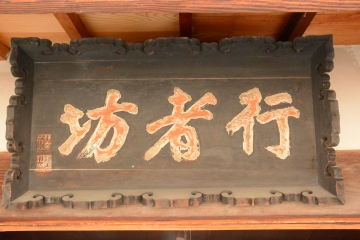 行者坊